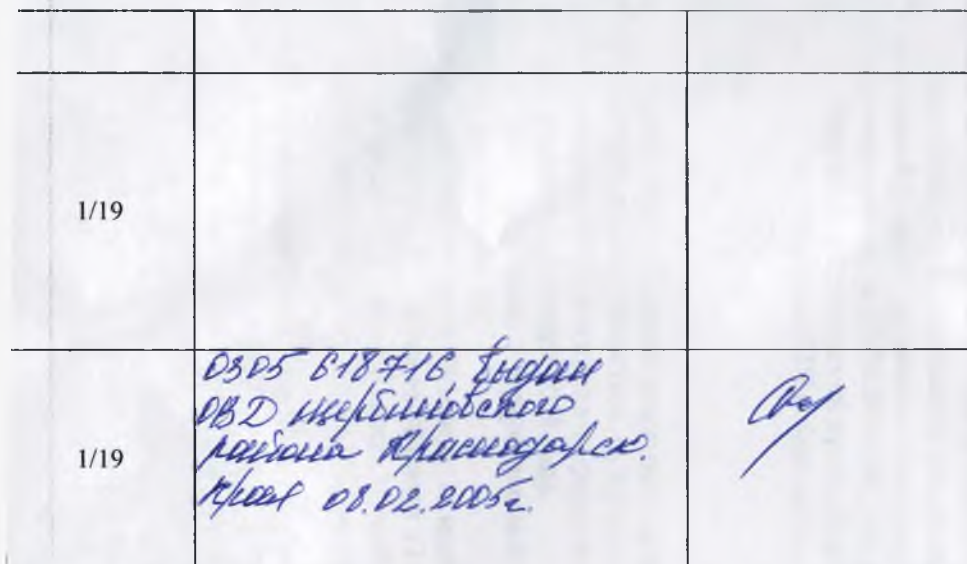 1/19
1/19
0305 618716, выдан
ОВД Щербиновского
района Краснодарск.
края 08.02.2005г.